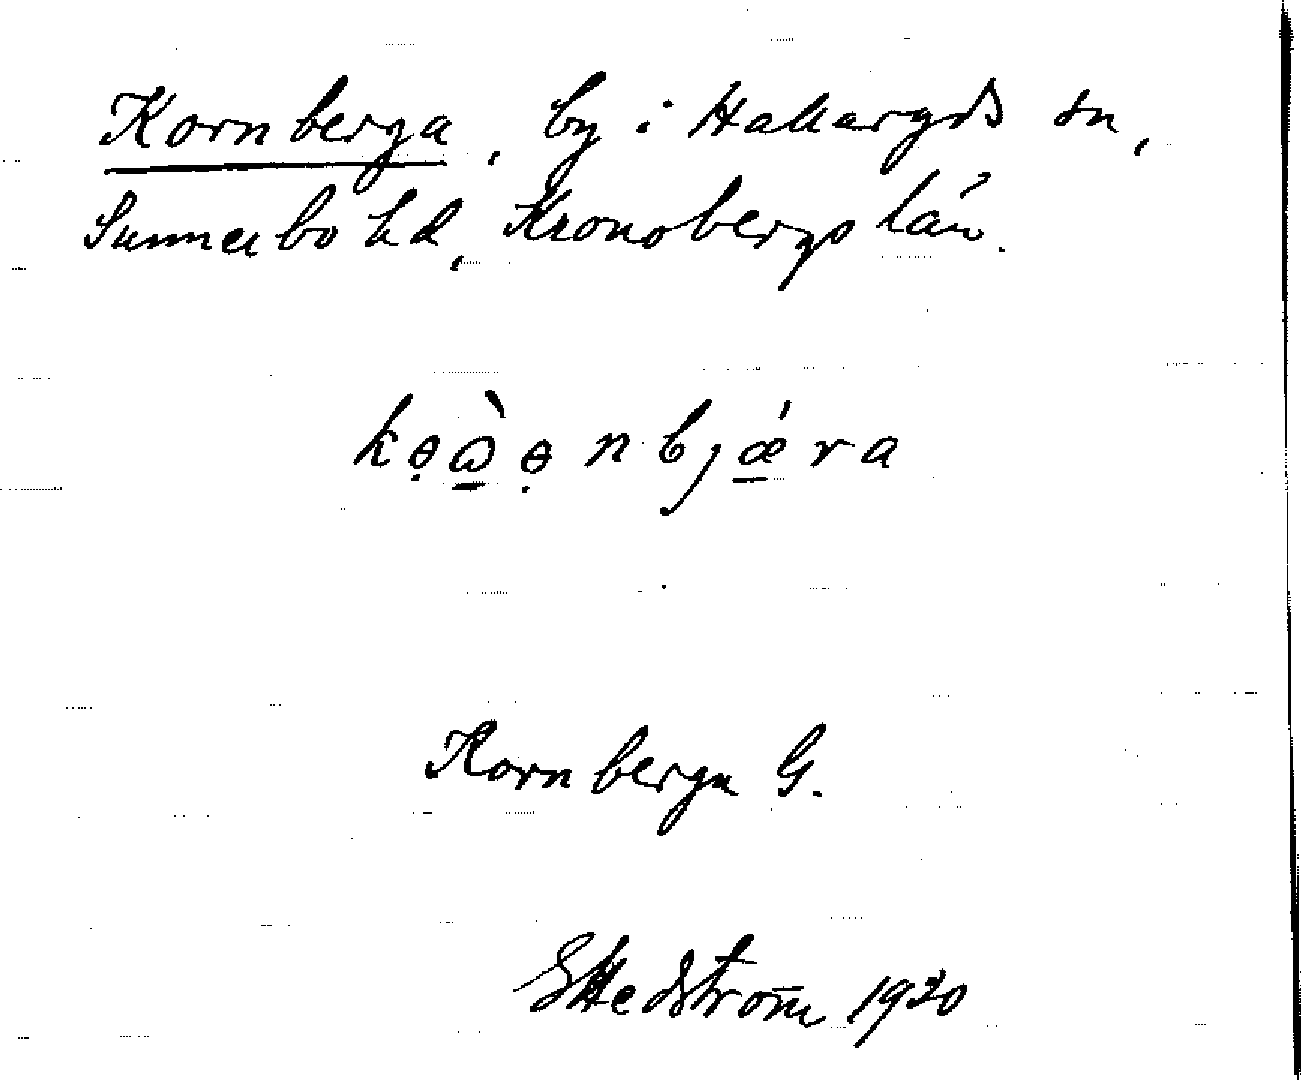 Kornberga, by i Hallaryds sn,
Sunnerbo hd, Kronobergs län.
kɵ̣ὼ̲ɵ̣nbjǽ̲ra
Kornberga G.
G Hedström 1920